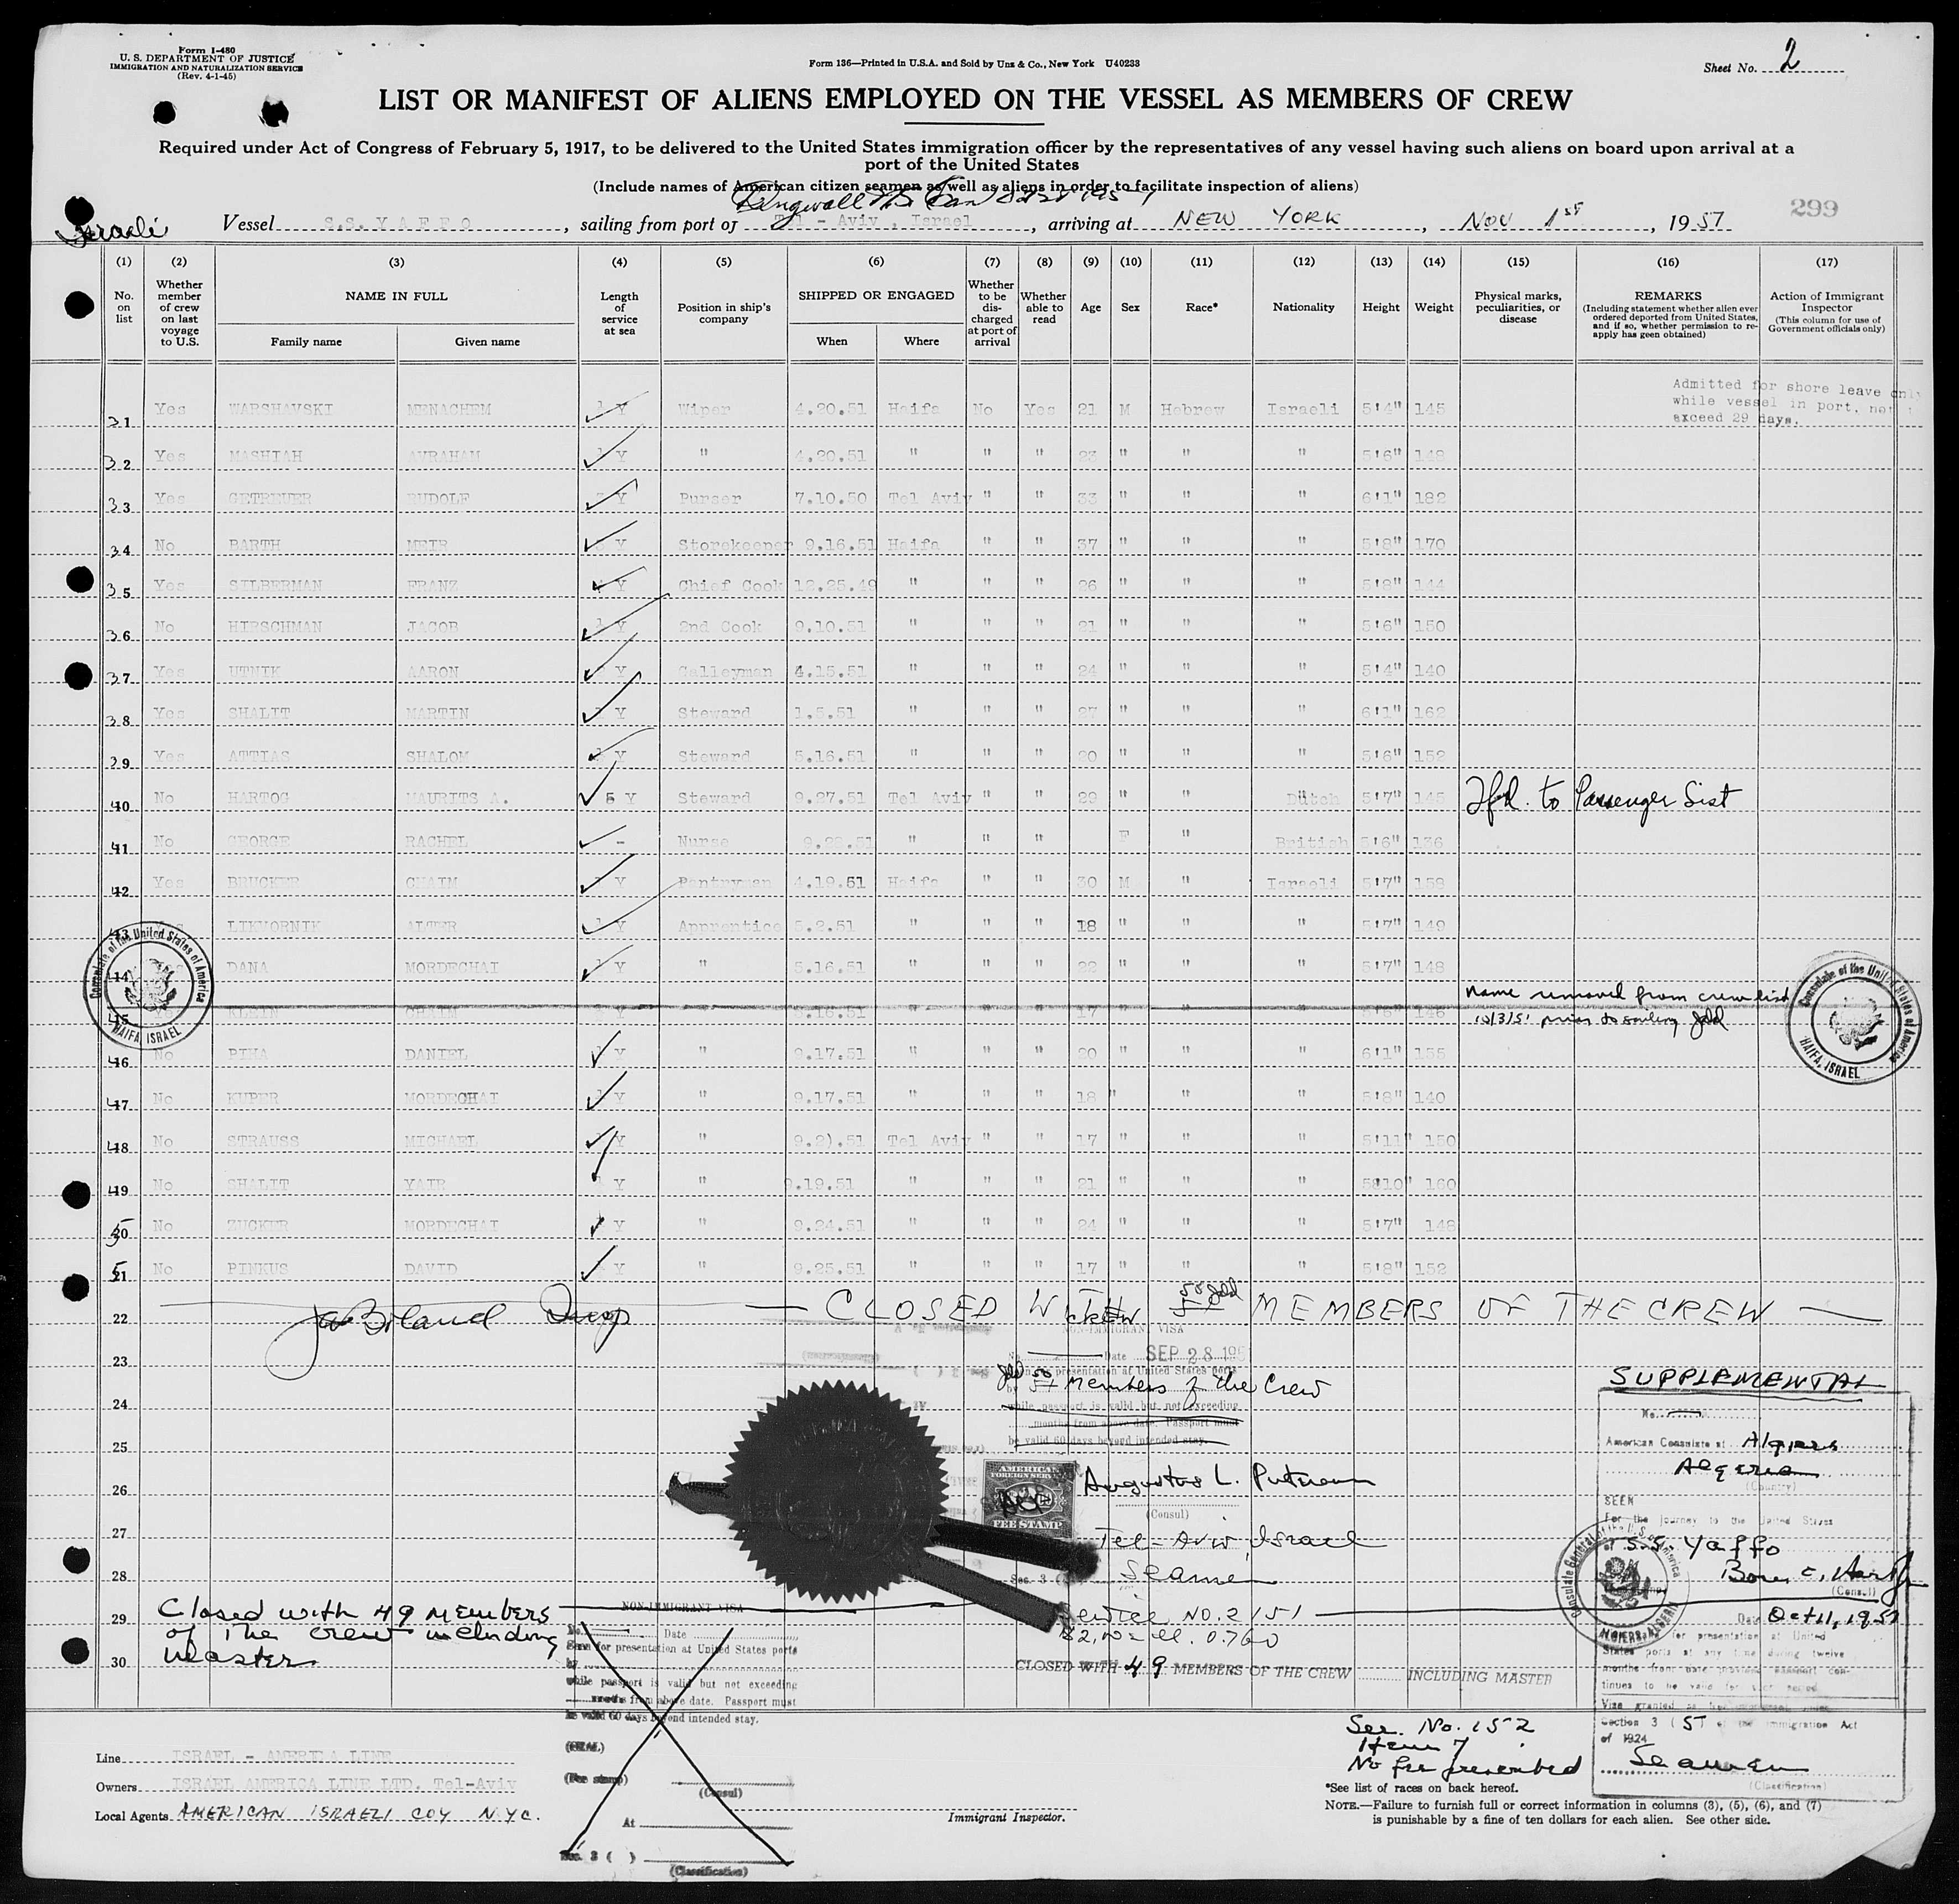 Form I-480
U. S. DEPARTMENT OF JUSTICE
IMMIGRATION AND NATURALIZATION SERVICE
(Rev. 4-1-45)
Form 136—Printed in U.S.A. and Sold by Unz & Co., New York U40233
Sheet No. 2
LIST OR MANIFEST OF ALIENS EMPLOYED ON THE VESSEL AS MEMBERS OF CREW
Required under Act of Congress of February 5, 1917, to be delivered to the United States immigration officer by the representatives of any vessel having such aliens on board upon arrival at a
port of the United States
(Include names of American citizen seamen as well as aliens in order to facilitate inspection of aliens)
299
Israeli Vessel S.S. YAFFO, sailing from port of Tel - Aviv, Israel, arriving at NEW YORK, NOV 1st, 1951
(1) (2) (3) (4) (5) (6) (7) (8) (9) (10) (11) (12) (13) (14) (15) (16) (17)
No. on list
Whether member of crew on last voyage to U.S.
NAME IN FULL
Family name Given name
Length of service at sea
Position in ship's company
SHIPPED OR ENGAGED
When Where
Whether to be discharged at port of arrival
Whether able to read
Age Sex Race* Nationality Height Weight
Physical marks, peculiarities, or disease
REMARKS
(Including statement whether alien ever ordered deported from United States, and if so, whether permission to re-apply has geen obtained)
Action of Immigrant Inspector
(This column for use of Government officials only)
Admitted for shore leave only
while vessel in port, not t
exceed 29 days.
31 Yes WARSHAVSKI MENACHEM Y Wiper 4.20.51 Haifa No Yes 21 M Hebrew Israeli 5'4" 145
32 Yes MASHIAH AVRAHAM Y " 4.20.51 " " " 23 " " " 5'6" 148
33 Yes GETREUER RUDOLF Y Purser 7.10.50 Tel Aviv " " 33 " " " 6'1" 182
34 No BARTH MEIR Y Storekeeper 9.16.51 Haifa " " 37 " " " 5'8" 170
35 Yes SILBERMAN FRANZ Y Chief Cook 12.25.49 " " " 26 " " " 5'8" 144
36 No HIRSCHMAN JACOB Y 2nd Cook 9.10.51 " " " 21 " " " 5'6" 150
37 Yes UTNIK AARON Y Galleyman 4.15.51 " " " 24 " " " 5'4" 140
38 Yes SHALIT MARTIN Y Steward 1.5.51 " " " 27 " " " 6'1" 162
39 Yes ATTIAS SHALOM Y Steward 5.16.51 " " " 20 " " " 5'6" 152
40 No HARTOG MAURITS A. 5 Y Steward 9.27.51 Tel Aviv " " 29 " " Dutch 5'7" 145 Tfd. to Passenger List
41 No GEORGE RACHEL - Nurse 9.28.51 " " " F " British 5'6" 136
42 Yes BRUCKER CHAIM Y Pantryman 4.19.51 Haifa " " 30 M " Israeli 5'7" 158
43 LIKVORNIK ALTER Y Apprentice 5.2.51 " " " 18 " " " 5'7" 149
44 DANA MORDECHAI Y " 5.16.51 " " " 22 " " " 5'7" 148
45 KLEIN CHAIM Y " .16.51 " " " 17 " " " 146 Name removed from crew list
10/3/51 prior to sailing
46 No PIHA DANIEL Y " 9.17.51 " " " 20 " " " 6'1" 155
47 No KUPER MORDECHAI Y " 9.17.51 " " " 18 " " " 5'8" 140
48 No STRAUSS MICHAEL Y " 9.2).51 Tel Aviv " " 17 " " " 5'11" 150
49 No SHALIT YAIR Y " 9.19.51 " " " 21 " " " 5810" 160
50 No ZUCKER MORDECHAI Y " 9.24.51 " " " 24 " " " 5'7" 148
51 No PINKUS DAVID Y " 9.25.51 " " " 17 " " " 5'8" 152
22 — CLOSED WITH 50 MEMBERS OF THE CREW —
CREW
NON-IMMIGRANT VISA
23
No. Date SEP 28 195
presentation at United States ports
50 Members of the Crew
24
while passport is valid but not exceeding
months from above date. Passport must
be valid 60 days beyond intended stay.
25
26
27
28
29
30
AMERICAN
FOREIGN SERVICE
FEE STAMP
Augustus L. Putnam
(Consul)
Tel-Aviv, Israel
Sec. 3 ( Seamen
Service NO. 2151
CLOSED WITH 49 MEMBERS OF THE CREW INCLUDING MASTER
Closed with 49 members
of the crew including
Master
SUPPLEMENTAL
No.
American Consulate at Algiers
Algeria
(Country)
SEEN
For the journey to the United States
of S.S. Yaffo
(Consul)
Date Oct 11, 1951
for presentation at United
States ports at any time during twelve
months from date provided passport con-
tinues to be valid for such period.
Section 3 (5) of the Immigration Act
of 1924
Seamen
(Classification)
Consulate General of the U.S. of America
ALGIERS, ALGERIA
Consulate of the United States of America
HAIFA, ISRAEL
Consulate of the United States of America
HAIFA, ISRAEL
NON-IMMIGRANT VISA
No. Date
Seen for presentation at United States ports
by
while passport is valid but not exceeding
months from above date. Passport must
be valid 60 days beyond intended stay.
(SEAL)
(Fee stamp)
(Consul)
At
Sec. 3 ( )
(Classification)
Ser. No. 152
Item 7
No fee prescribed
Line ISRAEL - AMERICA LINE
Owners ISRAEL AMERICA LINE LTD. Tel-Aviv
Local Agents AMERICAN ISRAELI COY N.Y.C.
Immigrant Inspector.
*See list of races on back hereof.
NOTE.—Failure to furnish full or correct information in columns (3), (5), (6), and (7)
is punishable by a fine of ten dollars for each alien. See other side.